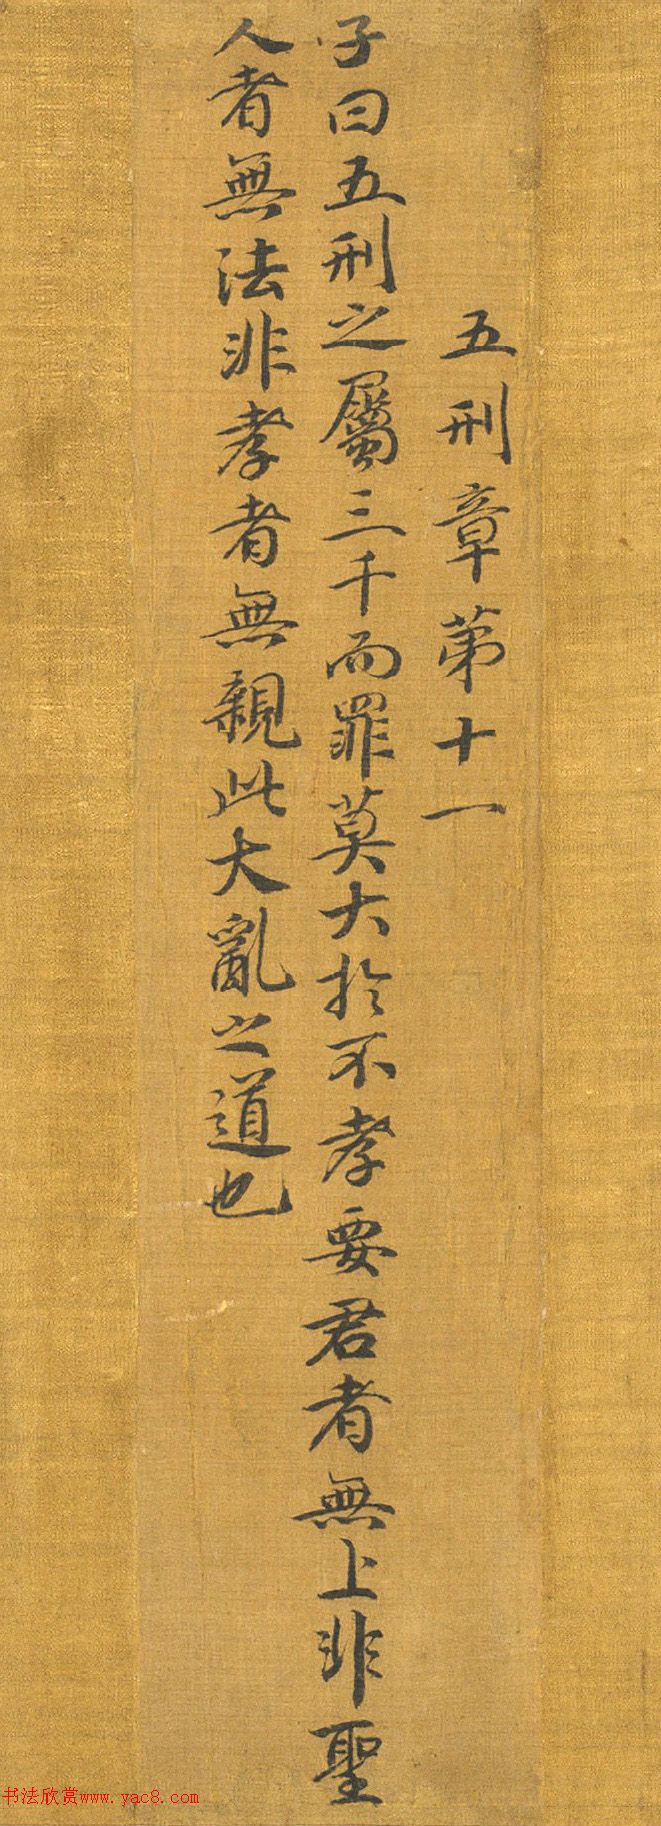 五刑章第十一
子曰五刑之屬三千而罪莫大於不孝要君者無上非聖
人者無法非孝者無親此大亂之道也
书法欣赏www.yac8.com